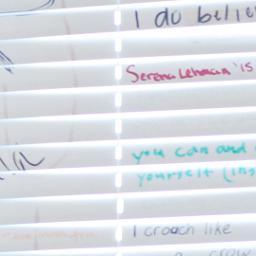 I do belie
Serena Lehman is
you can and
yourself (ins
I crouch like
crow